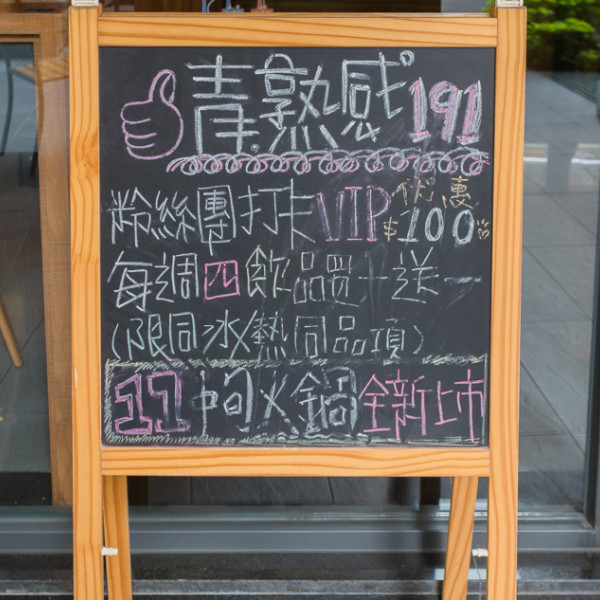 青.熟感° 191
粉絲團打卡VIP優惠$100
每週四飲品買一送一
(限同冰熱同品項)
11肉火鍋全新上市